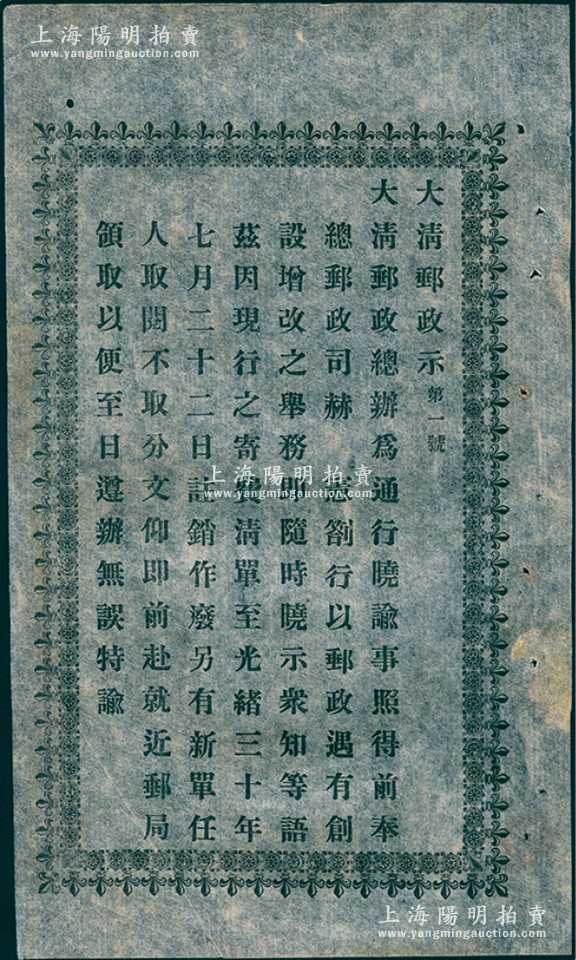 上海陽明拍賣
www.yangmingauction.com
大清郵政示 第一號
大清郵政總辦為通行曉諭事照得前奉
總郵政司赫 劄行以郵政遇有創
設增改之舉務即隨時曉示衆知等語
茲因現行之寄費清單至光緒三十年
七月二十二日註銷作廢另有新單任
人取閱不取分文仰即前赴就近郵局
領取以便至日遵辦無誤特諭
上海陽明拍賣
www.yangmingauction.com
上海陽明拍賣
www.yangmingauction.com